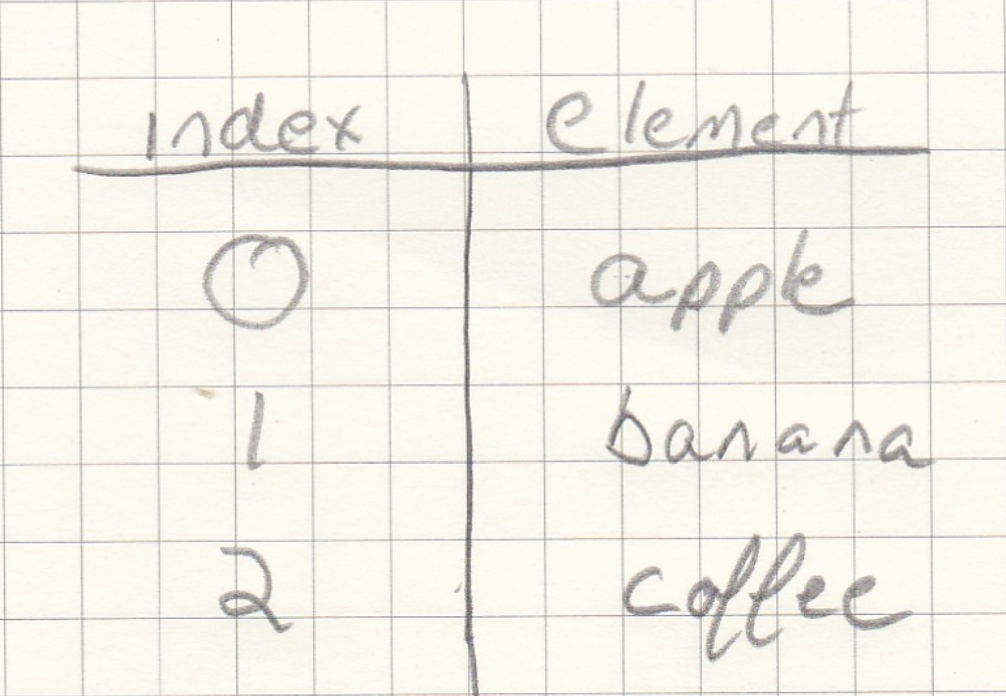 index element
0 apple
1 banana
2 coffee